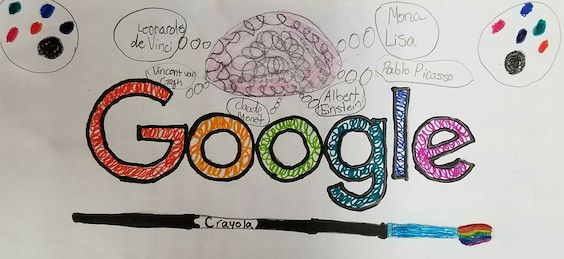 Leonardo
de Vinci
Mona
Lisa
Vincent van
Gogh
Pablo Picasso
Claude
Monet
Albert
Einstein
Google
Crayola